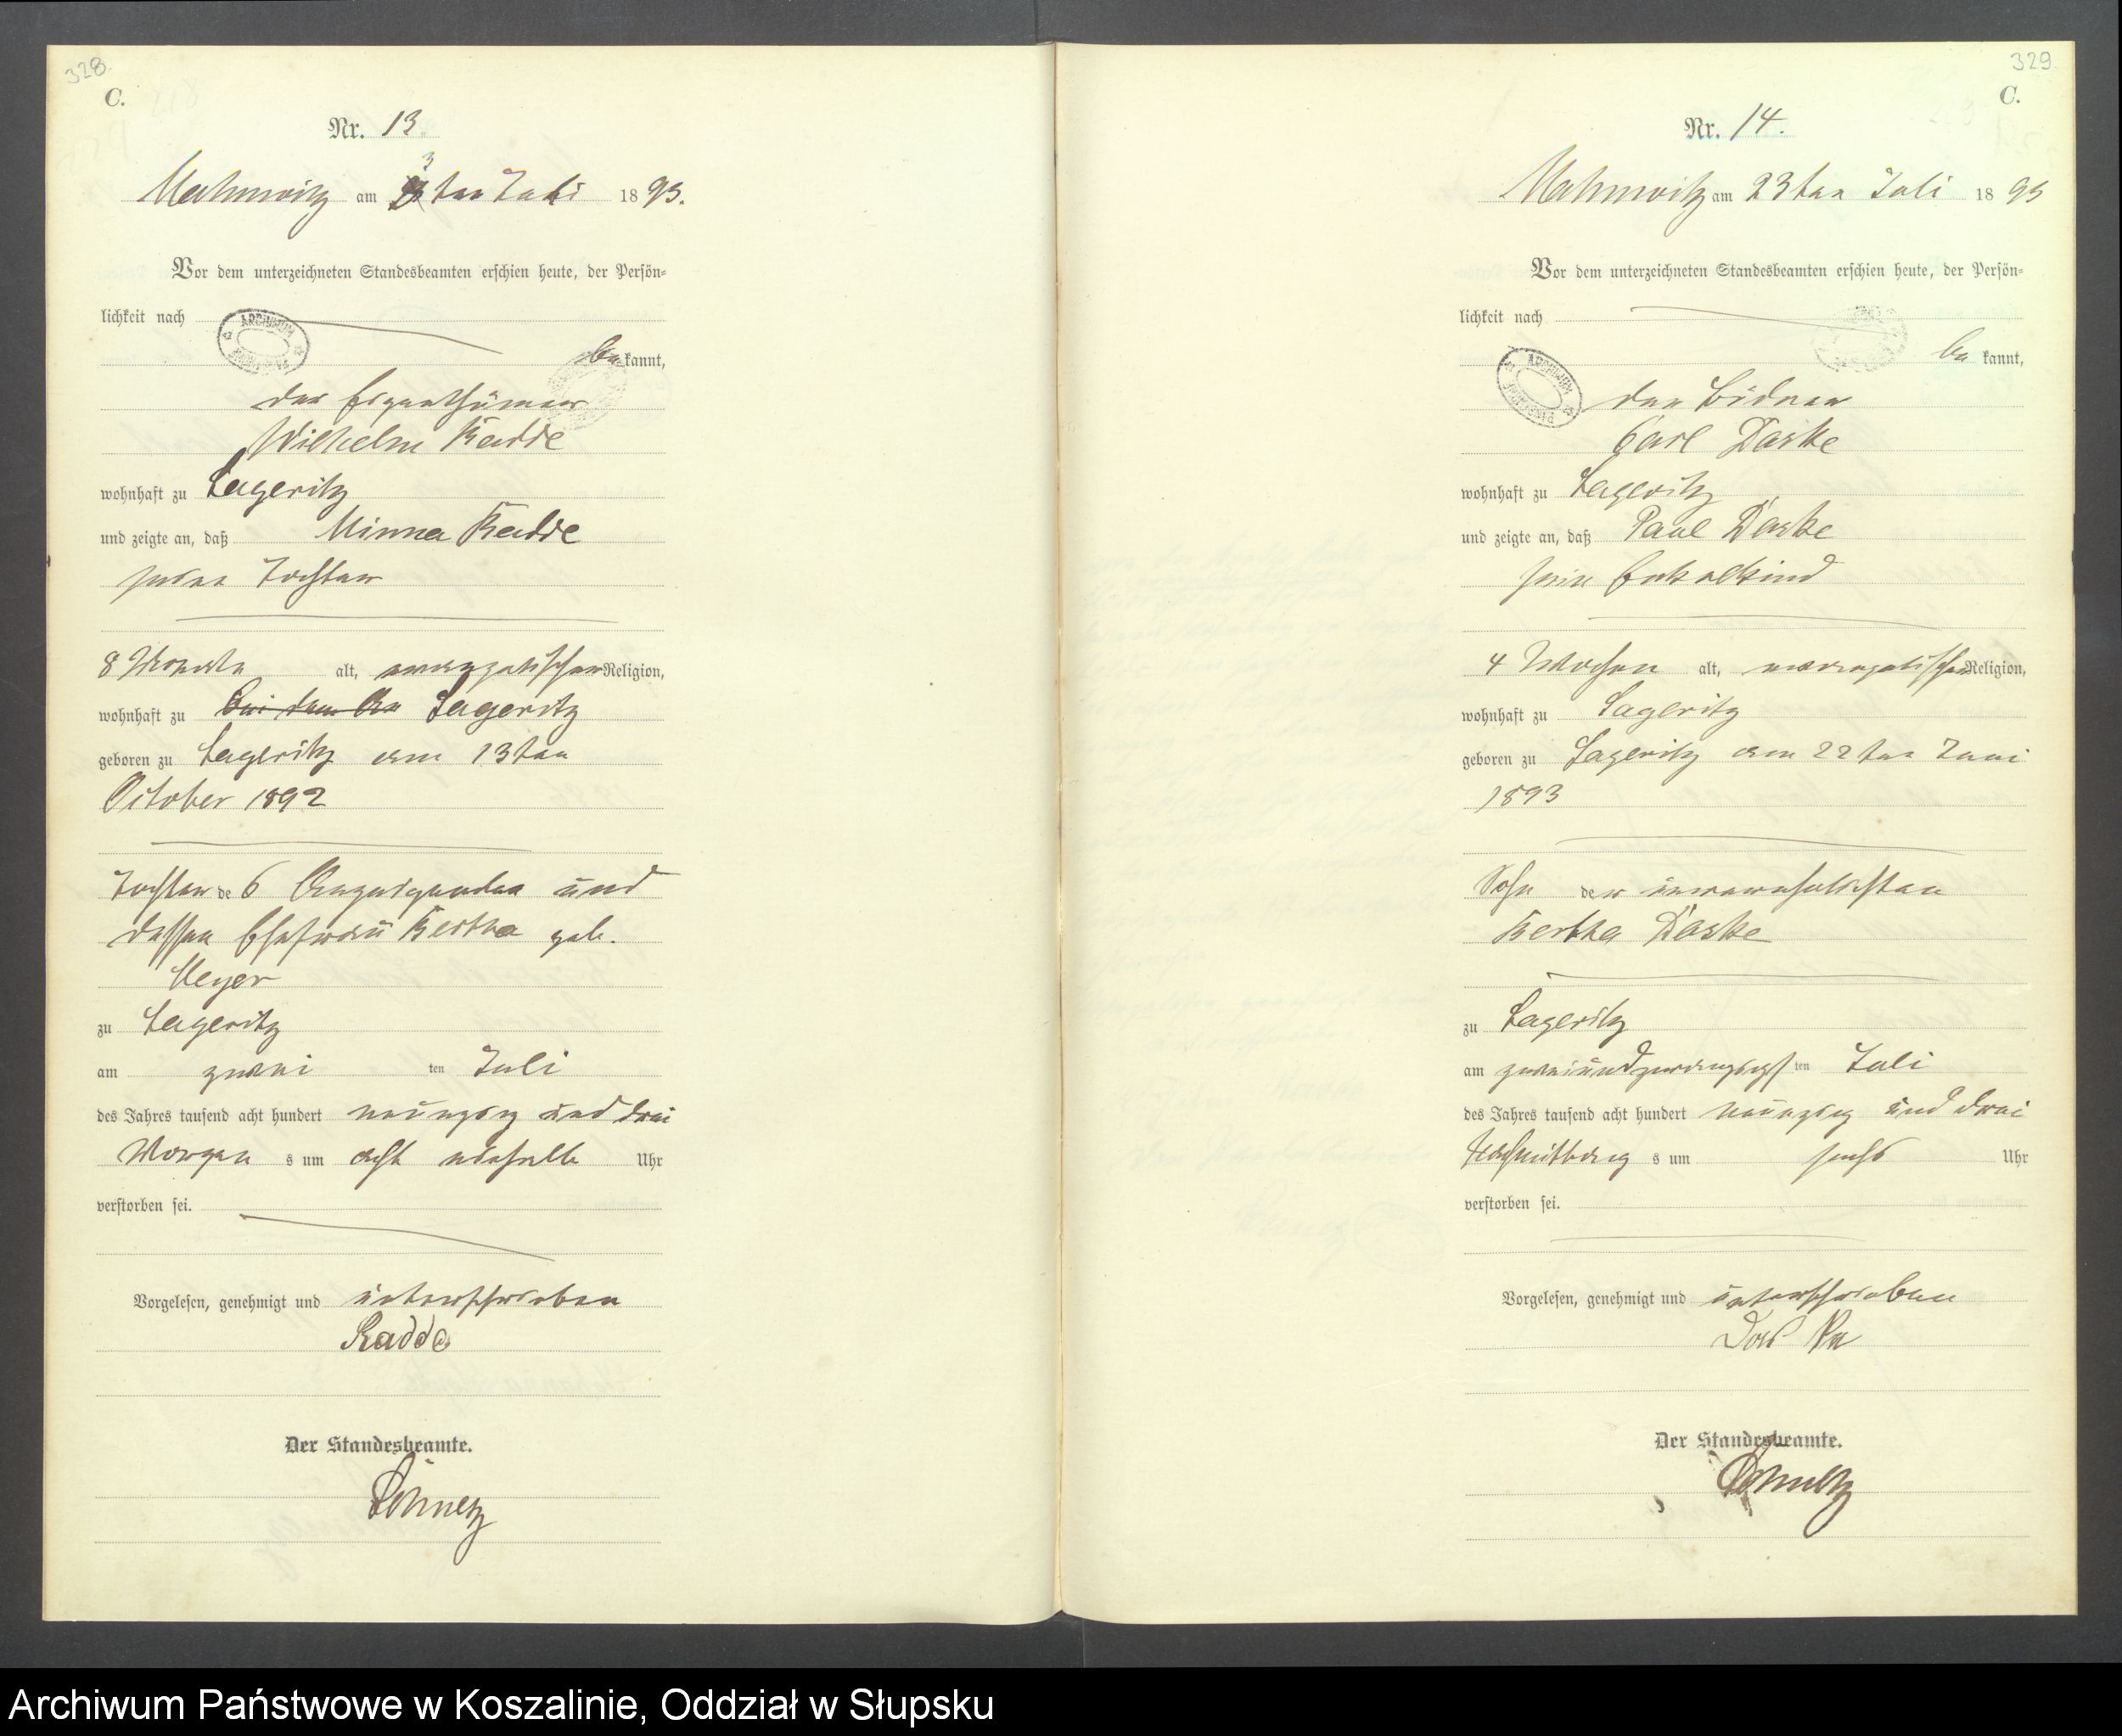 328.
C.
Nr. 13.
am 3 ten Juli 1893.
Vor dem unterzeichneten Standesbeamten erschien heute, der Persön=
lichkeit nach
be kannt,
der Eigenthümer
Wilhelm Radde
wohnhaft zu Lageritz
und zeigte an, daß Minna Radde
seine Tochter
8 Monate alt, evangelischer Religion,
wohnhaft zu bei dem An Lageritz
geboren zu Lageritz am 13 ten
October 1892
Tochter des Anzeigenden und
dessen Ehefrau Bertha geb.
Meyer
zu Lageritz
am zwei ten Juli
des Jahres tausend acht hundert neunzig und drei
Morgen s um acht einhalb Uhr
verstorben sei.
Vorgelesen, genehmigt und unterschrieben
Radde
Der Standesbeamte.
Schultz
329.
C.
Nr. 14.
am 23 ten Juli 1893
Vor dem unterzeichneten Standesbeamten erschien heute, der Persön=
lichkeit nach
be kannt,
der Büdner
Carl Daske
wohnhaft zu Lageritz
und zeigte an, daß Paul Daske
sein Enkelkind
4 Wochen alt, evangelischer Religion,
wohnhaft zu Lageritz
geboren zu Lageritz am 22 ten Juni
1893
Sohn der unverehelichten
Bertha Daske
zu Lageritz
am zweiundzwanzigst ten Juli
des Jahres tausend acht hundert neunzig und drei
Nachmittag s um sechs Uhr
verstorben sei.
Vorgelesen, genehmigt und unterschrieben
Der Standesbeamte.
Schultz
Archiwum Państwowe w Koszalinie, Oddział w Słupsku